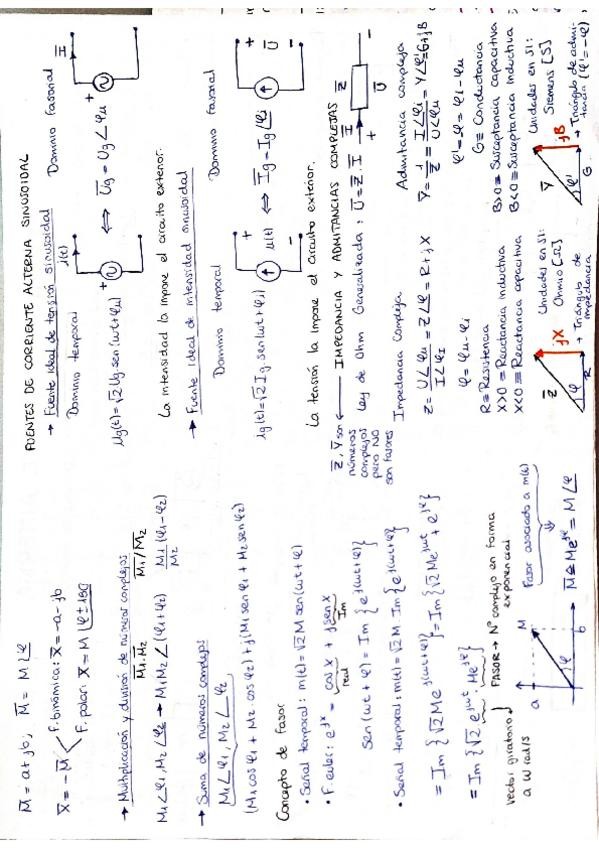 M̅ = a + jb ; M̅ = M∠φ
X̅ = -M̅
F. binómica: X̅ = -a - jb
F. polar: X̅ = M∠φ ± 180
→ Multiplicación y división de números complejos
M̅1·M̅2
M̅1/M̅2
M1∠φ1, M2∠φ2 → M1M2∠(φ1+φ2)
M1/M2 ∠(φ1-φ2)
→ Suma de números complejos
M1∠φ1, M2∠φ2
(M1cosφ1 + M2·cosφ2) + j(M1senφ1 + M2senφ2)
Concepto de fasor
• Señal temporal: m(t) = √2 M sen(wt+φ)
• F. euler: e^jx = cosx + jsenx
real
Im
sen(wt+φ) = Im{e^j(wt+φ)}
• Señal temporal: m(t) = √2 M·Im{e^j(wt+φ)}
= Im{√2 Me^j(wt+φ)} = Im{√2 Me^jwt + e^jφ}
= Im{√2 e^jwt · Me^jφ}
vector giratorio
a W rad/s
FASOR → Nº complejo en forma
exponencial
Fasor asociado a m(t)
a
M
φ
b
M̅ ≙ Me^jφ = M∠φ
FUENTES DE CORRIENTE ALTERNA SINUSOIDAL
→ Fuente ideal de tensión sinusoidal
Dominio temporal
Dominio fasorial
i(t)
I̅
+
+
Ug(t) = √2 Ug·sen(wt+φu) ⇔ U̅g = Ug∠φu
La intensidad la impone el circuito exterior.
→ Fuente ideal de intensidad sinusoidal
Dominio temporal
Dominio fasorial
+
u(t)
-
+
U̅
-
Ig(t) = √2 Ig·sen(wt+φi) ⇔ I̅g = Ig∠φi
La tensión la impone el circuito exterior.
Z̅, Y̅ son
números
complejos
pero NO
son fasores
IMPEDANCIA Y ADMITANCIAS COMPLEJAS
Ley de Ohm Generalizada: U̅ = Z̅·I̅
I̅
+
Z̅
U̅
-
Impedancia Compleja
Z = U∠φu / I∠φI = Z∠φ = R + jX
φ = φu - φi
R ≡ Resistencia
X>0 ≡ Reactancia inductiva
X<0 ≡ Reactancia capacitiva
Z̅
jX
φ
R
Unidades en SI:
Ohmio [Ω]
→ Triángulo de
impedancia
Admitancia compleja
Y̅ = 1/Z̅ = I∠φi / U∠φu = Y∠φ' = G + jB
φ' = -φ = φi - φu
G ≡ Conductancia
B>0 ≡ Susceptancia capacitiva
B<0 ≡ Susceptancia inductiva
Y̅
jB
φ'
G
Unidades en SI:
Siemens [S]
→ Triángulo de admi-
tancia (φ' = -φ)